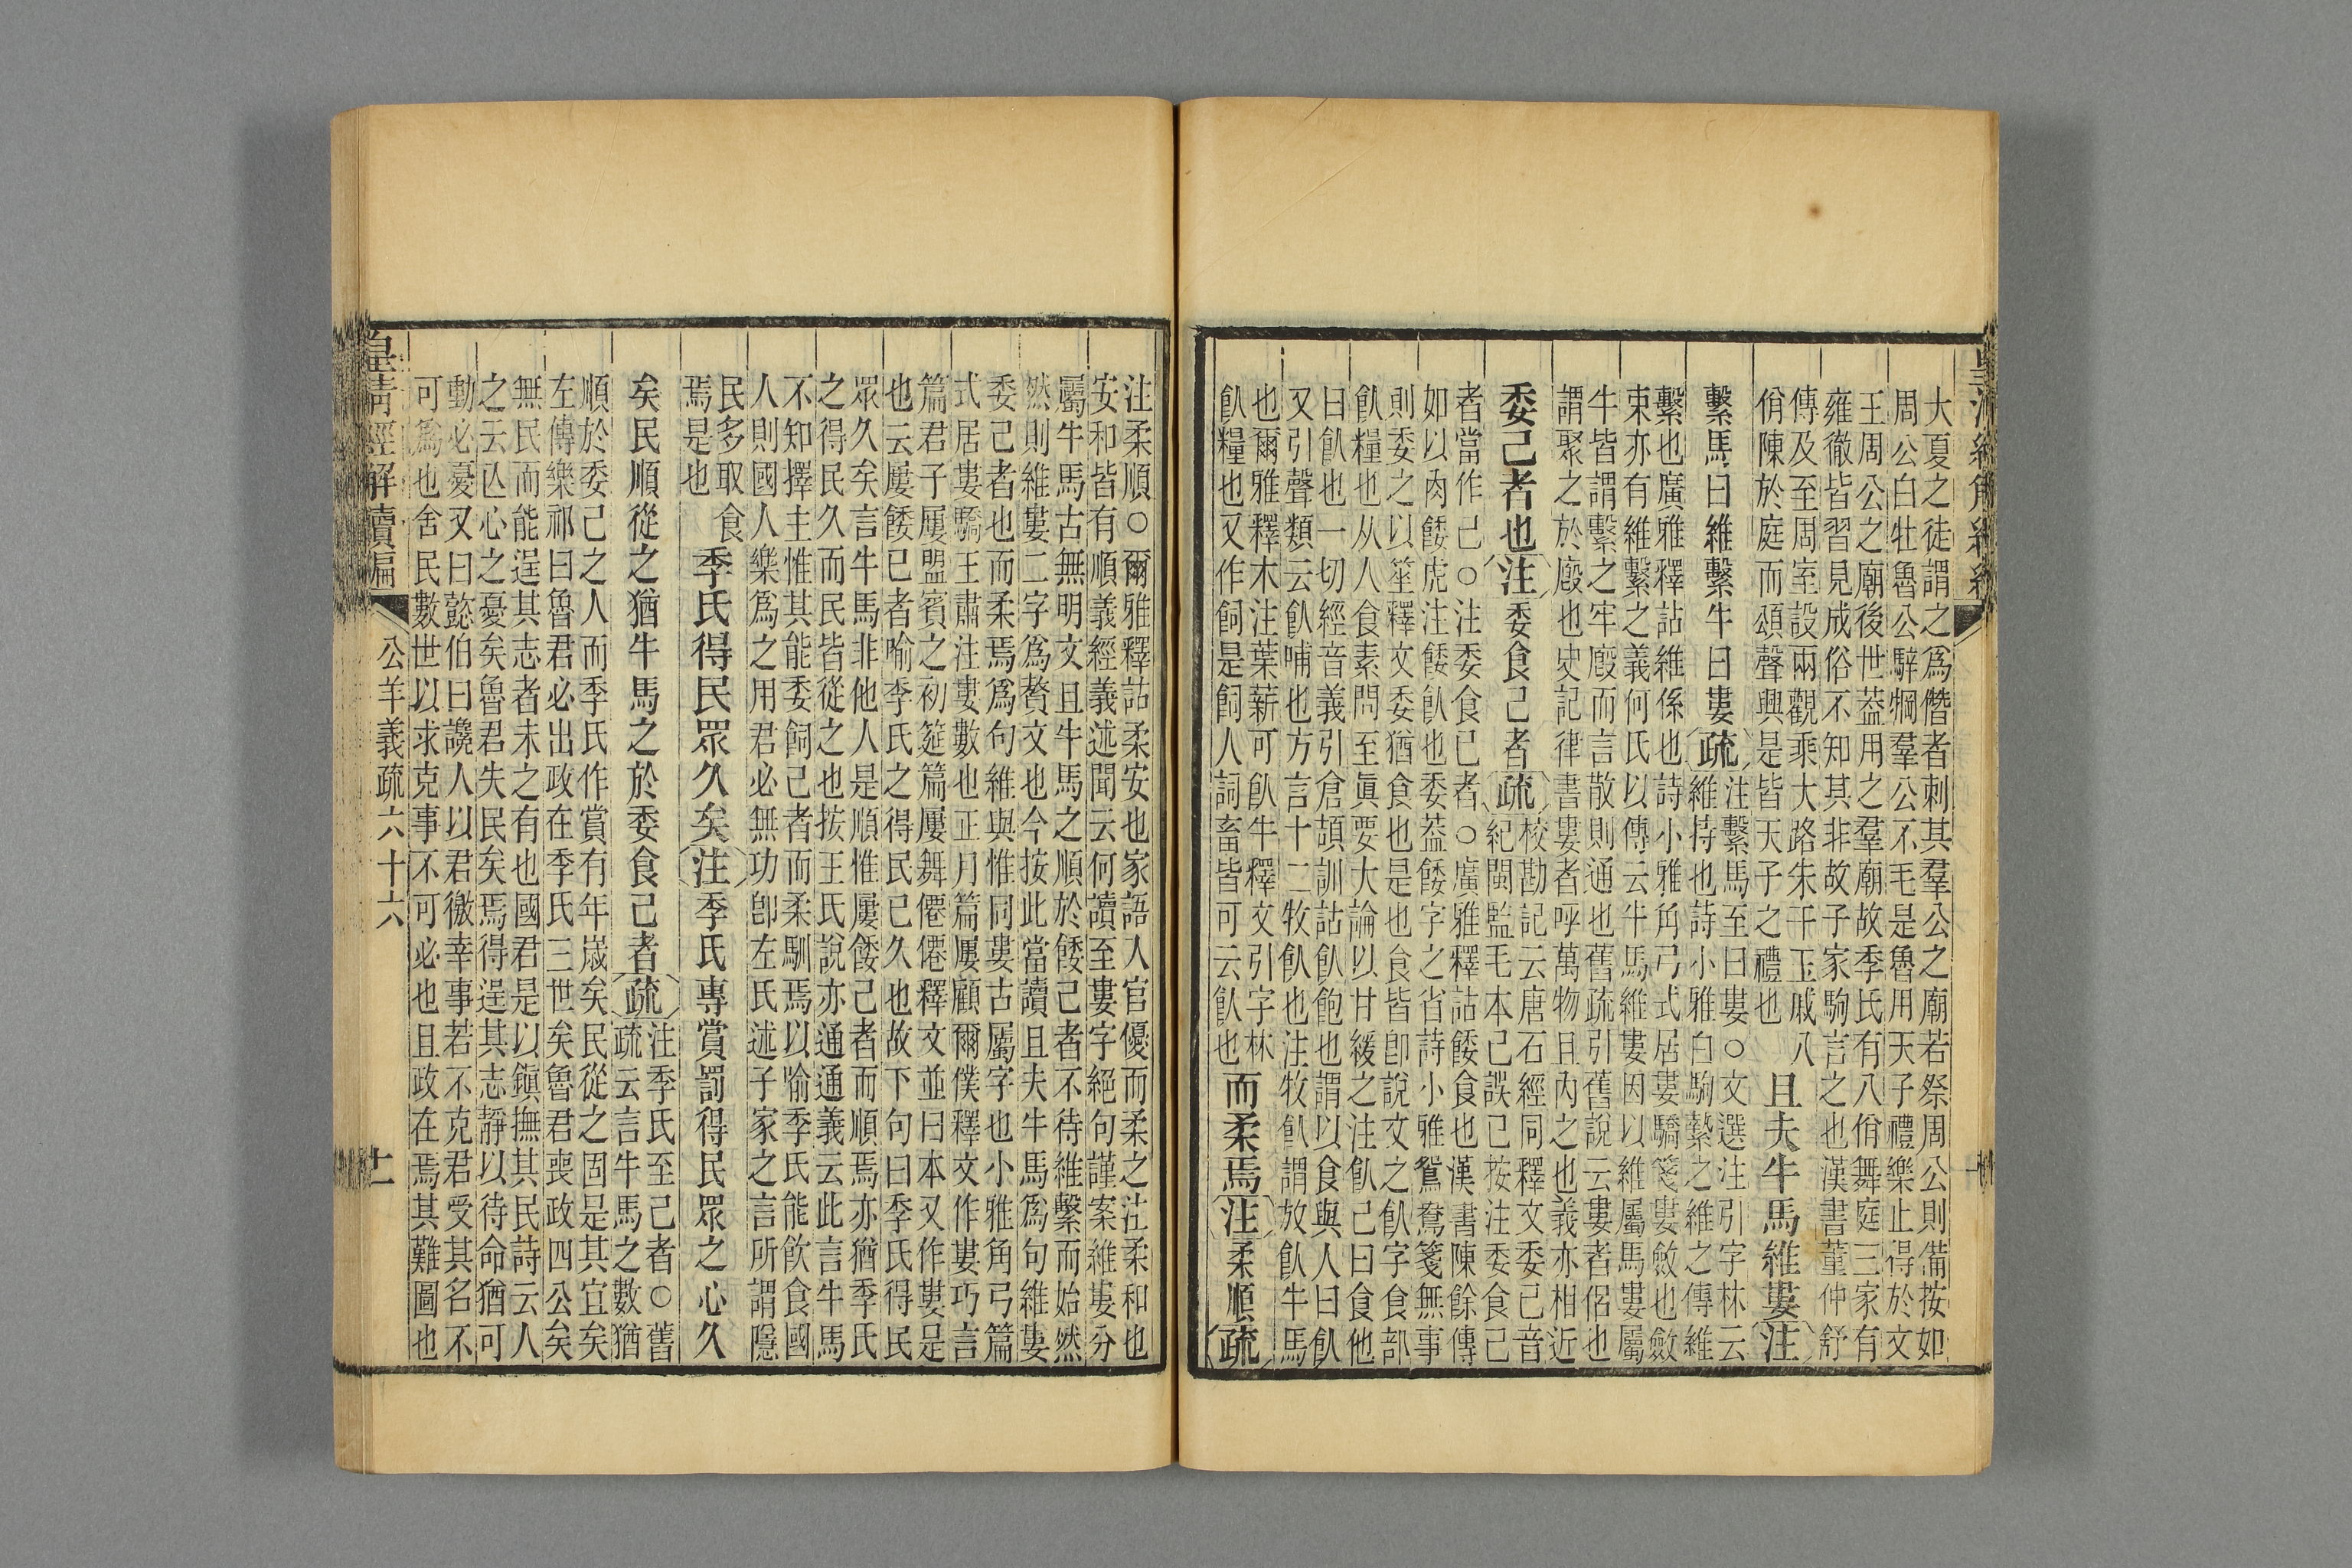 大夏之徒謂之爲僭者刺其羣公之廟若祭周公則備按如
周公白牡魯公騂犅羣公不毛是魯用天子禮樂止得於文
王周公之廟後世葢用之羣廟故季氏有八佾舞庭三家有
雍徹皆習見成俗不知其非故子家駒言之也漢書董仲舒
傳及至周室設兩觀乘大路朱干玉戚八
佾陳於庭而頌聲興是皆天子之禮也
且夫牛馬維婁注
繫馬曰維繫牛曰婁疏
注繫馬至曰婁○文選注引字林云
維持也詩小雅白駒縶之維之傳維
繫也廣雅釋詁維係也詩小雅角弓式居婁驕箋婁斂也斂
束亦有維繫之義何氏以傳云牛馬維婁因以維屬馬婁屬
牛皆謂繫之牢廄而言散則通也舊疏引舊說云婁者侶也
謂聚之於廄也史記律書婁者呼萬物且內之也義亦相近
委己者也注委食己者疏
校勘記云唐石經同釋文委己音
紀閩監毛本己誤已按注委食己
者當作己○注委食已者○廣雅釋詁餧食也漢書陳餘傳
如以肉餧虎注餧飤也委葢餧字之省詩小雅鴛鴦箋無事
則委之以莝釋文委猶食也是也食皆卽說文之飤字食部
飤糧也从人食素問至眞要大論以甘緩之注飤己曰食他
曰飤也一切經音義引倉頡訓詁飤飽也謂以食與人曰飤
又引聲類云飤哺也方言十二牧飤也注牧飤謂放飤牛馬
也爾雅釋木注葉薪可飤牛釋文引字林
飤糧也又作飼是飼人詞畜皆可云飤也
而柔焉注柔順疏
注柔順○爾雅釋詁柔安也家語入官優而柔之注柔和也
安和皆有順義經義述聞云何讀至婁字絕句謹案維婁分
屬牛馬古無明文且牛馬之順於餧己者不待維繫而始然
然則維婁二字爲贅文也今按此當讀且夫牛馬爲句維婁
委己者也而柔焉爲句維與惟同婁古屬字也小雅角弓篇
式居婁驕王肅注婁數也正月篇屢顧爾僕釋文作婁巧言
篇君子屢盟賓之初筵篇屢舞僊僊釋文並曰本又作婁是
也云屢餧巳者喻季氏之得民已久也故下句曰季氏得民
眾久矣言牛馬非他人是順惟屢餧己者而順焉亦猶季氏
之得民久而民皆從之也按王氏說亦通通義云此言牛馬
不知擇主惟其能委飼己者而柔馴焉以喻季氏能飮食國
人則國人樂爲之用君必無功卽左氏述子家之言所謂隱
民多取食
焉是也
季氏得民眾久矣注季氏專賞罰得民眾之心久
矣民順從之猶牛馬之於委食己者疏
注季氏至己者○舊
疏云言牛馬之數猶
順於委己之人而季氏作賞有年嵗矣民從之固是其宜矣
左傳樂祁曰魯君必出政在季氏三世矣魯君喪政四公矣
無民而能逞其志者未之有也國君是以鎭撫其民詩云人
之云亾心之憂矣魯君失民矣焉得逞其志靜以待命猶可
動必憂又曰懿伯曰讒人以君徼幸事若不克君受其名不
可爲也舍民數世以求克事不可必也且政在焉其難圖也
皇清經解續編
公羊義疏六十六
十一